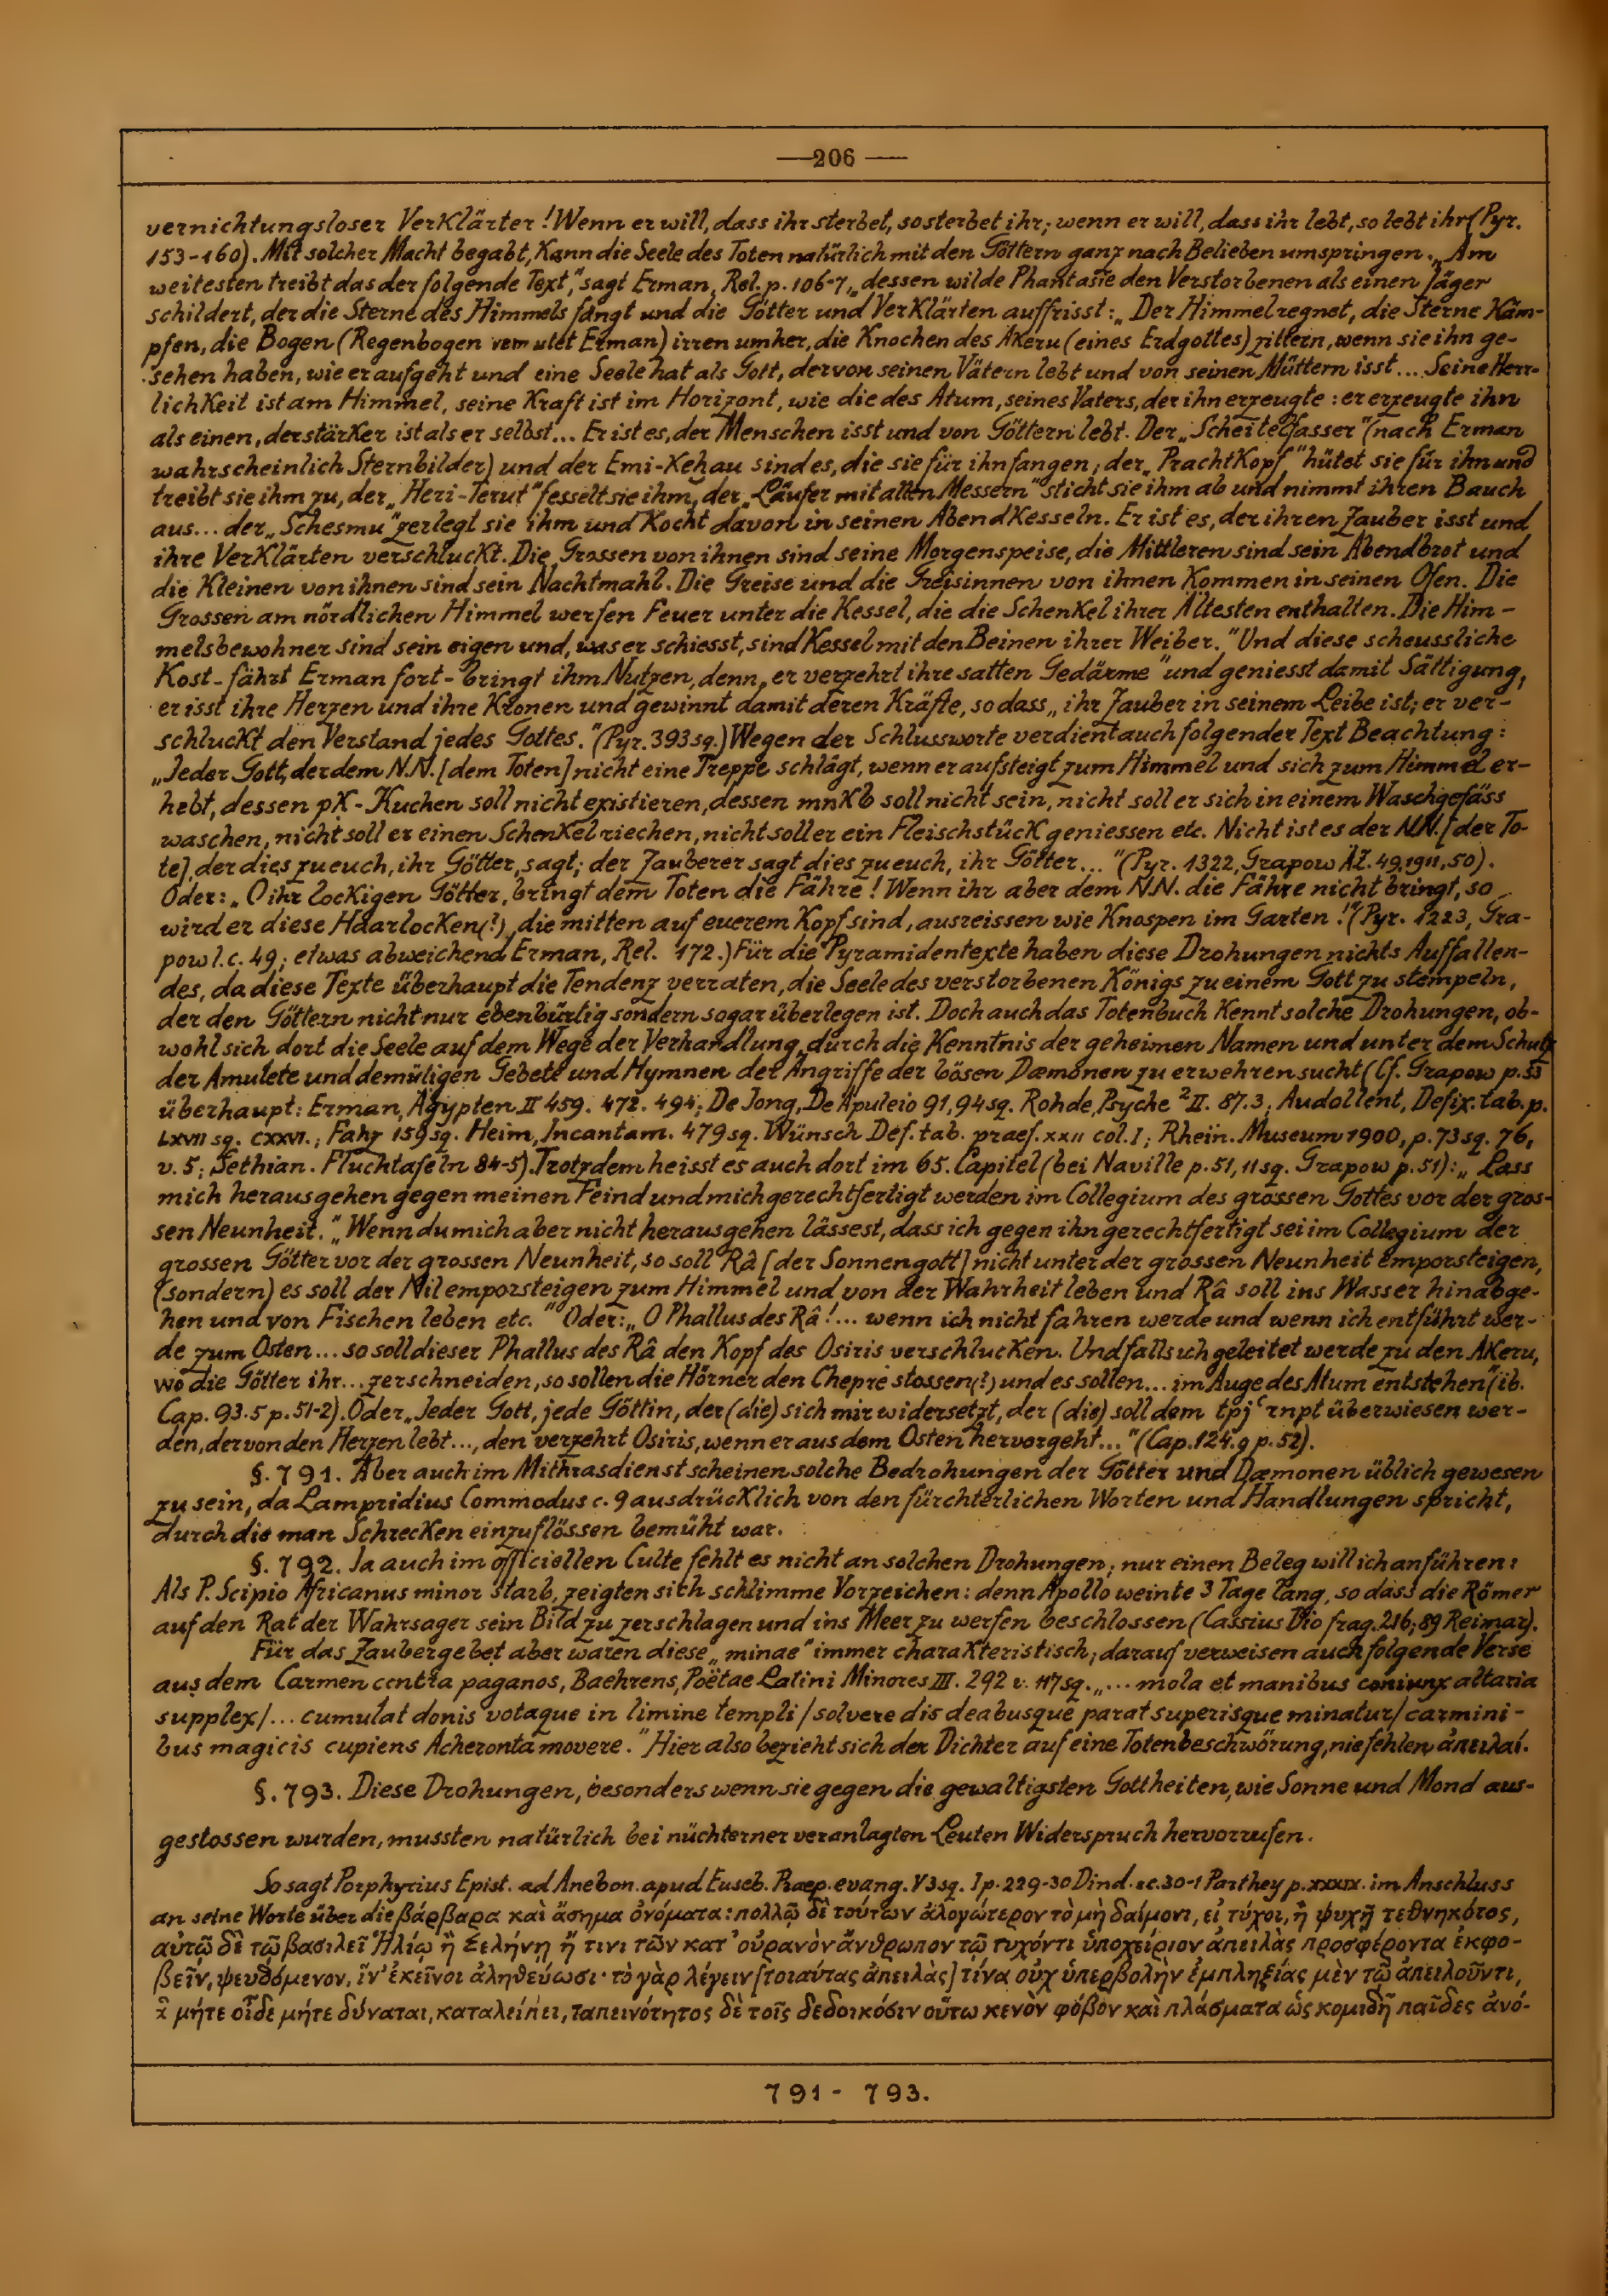 —206—
vernichtungsloser Verklärter! Wenn er will, dass ihr sterbet, so sterbet ihr; wenn er will, dass ihr lebt, so lebt ihr (Pyr.
153-160). Mit solcher Macht begabt, kann die Seele des Toten natürlich mit den Göttern ganz nach Belieben umspringen. „Am
weitesten treibt das der folgende Text," sagt Erman, Rel. p. 106-7, „dessen wilde Phantasie den Verstorbenen als einen Jäger
schildert, der die Sterne des Himmels fängt und die Götter und Verklärten auffrisst: „Der Himmel regnet, die Sterne käm-
pfen, die Bogen (Regenbogen vermutet Erman) irren umher, die Knochen des Akeru (eines Erdgottes) zittern, wenn sie ihn ge-
sehen haben, wie er aufgeht und eine Seele hat als Gott, der von seinen Vätern lebt und von seinen Müttern isst... Seine Herr-
lichkeit ist am Himmel, seine Kraft ist im Horizont, wie die des Atum, seines Vaters, der ihn erzeugte: er erzeugte ihn
als einen, der stärker ist als er selbst... Er ist es, der Menschen isst und von Göttern lebt. Der „Scheitelfasser" (nach Erman
wahrscheinlich Sternbilder) und der Emi-Kehau sind es, die sie für ihn fangen; der „Prachtkopf" hütet sie für ihn und
treibt sie ihm zu, der „Heri-Terut" fesselt sie ihm, der „Läufer mit allen Messern" sticht sie ihm ab und nimmt ihren Bauch
aus... der „Schesmu" zerlegt sie ihm und kocht davon in seinen Abendkesseln. Er ist es, der ihren Zauber isst und
ihre Verklärten verschluckt. Die Grossen von ihnen sind seine Morgenspeise, die Mittleren sind sein Abendbrot und
die Kleinen von ihnen sind sein Nachtmahl. Die Greise und die Greisinnen von ihnen kommen in seinen Ofen. Die
Grossen am nördlichen Himmel werfen Feuer unter die Kessel, die die Schenkel ihrer Ältesten enthalten. Die Him-
melsbewohner sind sein eigen und, was er schiesst, sind Kessel mit den Beinen ihrer Weiber." Und diese scheussliche
Kost - fährt Erman fort - bringt ihm Nutzen, denn „er verzehrt ihre satten Gedärme" und geniesst damit Sättigung,
er isst ihre Herzen und ihre Kronen und gewinnt damit deren Kräfte, so dass „ihr Zauber in seinem Leibe ist; er ver-
schluckt den Verstand jedes Gottes." (Pyr. 393 sq.) Wegen der Schlussworte verdient auch folgender Text Beachtung:
„Jeder Gott, der dem N.N. [dem Toten] nicht eine Treppe schlägt, wenn er aufsteigt zum Himmel und sich zum Himmel er-
hebt, dessen pK-Kuchen soll nicht existieren, dessen mnKb soll nicht sein, nicht soll er sich in einem Waschgefäss
waschen, nicht soll er einen Schenkel riechen, nicht soll er ein Fleischstück geniessen etc. Nicht ist es der N.N. [der To-
te], der dies zu euch, ihr Götter, sagt; der Zauberer sagt dies zu euch, ihr Götter..." (Pyr. 1322, Grapow ÄZ. 49, 1911, 50).
Oder: „O ihr lockigen Götter, bringt dem Toten die Fähre! Wenn ihr aber dem N.N. die Fähre nicht bringt, so
wird er diese Haarlocken(?), die mitten auf euerem Kopf sind, ausreissen wie Knospen im Garten!" (Pyr. 1223, Gra-
pow l.c. 49; etwas abweichend Erman, Rel. 172.) Für die Pyramidentexte haben diese Drohungen nichts Auffallen-
des, da diese Texte überhaupt die Tendenz verraten, die Seele des verstorbenen Königs zu einem Gott zu stempeln,
der den Göttern nicht nur ebenbürtig sondern sogar überlegen ist. Doch auch das Totenbuch kennt solche Drohungen, ob-
wohl sich dort die Seele auf dem Wege der Verhandlung, durch die Kenntnis der geheimen Namen und unter dem Schutz
der Amulete und demütigen Gebete und Hymnen der Angriffe der bösen Dæmonen zu erwehren sucht (Cf. Grapow p. 53
überhaupt: Erman, Ägypten II 459. 472. 494; De Jong, De Apuleio 91, 94 sq. Rohde, Psyche ²II. 87.3; Audollent, Defix. tab. p.
LXVII sq. CXXVI.; Fahz 159 sq. Heim, Incantam. 479 sq. Wünsch Def. tab. praef. XXII col. I; Rhein. Museum 1900, p. 73 sq. 76,
v. 5; Sethian. Fluchtafeln 84-5). Trotzdem heisst es auch dort im 65. Capitel (bei Naville p. 51, 11 sq. Grapow p. 51): „Lass
mich herausgehen gegen meinen Feind und mich gerechtfertigt werden im Collegium des grossen Gottes vor der gros-
sen Neunheit." „Wenn du mich aber nicht herausgehen lässest, dass ich gegen ihn gerechtfertigt sei im Collegium der
grossen Götter vor der grossen Neunheit, so soll Râ [der Sonnengott] nicht unter der grossen Neunheit emporsteigen,
(sondern) es soll der Nil emporsteigen zum Himmel und von der Wahrheit leben und Râ soll ins Wasser hinabge-
hen und von Fischen leben etc." Oder: „O Phallus des Râ!... wenn ich nicht fahren werde und wenn ich entführt wer-
de zum Osten... so soll dieser Phallus des Râ den Kopf des Osiris verschlucken. Und falls ich geleitet werde zu den Akeru,
wo die Götter ihr... zerschneiden, so sollen die Hörner den Chepre stossen(?) und es sollen... im Auge des Atum entstehen" (ib.
Cap. 93.5 p. 51-2). Oder „Jeder Gott, jede Göttin, der (die) sich mir widersetzt, der (die) soll dem tpj ʿrnpt überwiesen wer-
den, der von den Herzen lebt..., den verzehrt Osiris, wenn er aus dem Osten hervorgeht..." (Cap. 124.9 p. 52).
§. 791. Aber auch im Mithrasdienst scheinen solche Bedrohungen der Götter und Dæmonen üblich gewesen
zu sein, da Lampridius Commodus c. 9 ausdrücklich von den fürchterlichen Worten und Handlungen spricht,
durch die man Schrecken einzuflössen bemüht war.
§. 792. Ja auch im officiellen Culte fehlt es nicht an solchen Drohungen; nur einen Beleg will ich anführen:
Als P. Scipio Africanus minor starb, zeigten sich schlimme Vorzeichen: denn Apollo weinte 3 Tage lang, so dass die Römer
auf den Rat der Wahrsager sein Bild zu zerschlagen und ins Meer zu werfen beschlossen (Cassius Dio frag. 216; 89 Reimar).
Für das Zaubergebet aber waren diese „minae" immer charakteristisch; darauf verweisen auch folgende Verse
aus dem Carmen contra paganos, Baehrens, Poëtae Latini Minores III. 292 v. 117 sq. „... mola et manibus coniunx altaria
supplex/... cumulat donis votaque in limine templi / solvere dis deabusque parat superisque minatur/ carmini-
bus magicis cupiens Acheronta movere." Hier also bezieht sich der Dichter auf eine Totenbeschwörung, nie fehlen ἀπειλαί.
§. 793. Diese Drohungen, besonders wenn sie gegen die gewaltigsten Gottheiten, wie Sonne und Mond aus-
gestossen wurden, mussten natürlich bei nüchterner veranlagten Leuten Widerspruch hervorrufen.
So sagt Porphyrius Epist. ad Anebon. apud Euseb. Praep. evang. V 3 sq. I p. 229-30 Dind. sc. 30-1 Parthey p. XXXIX. im Anschluss
an seine Worte über die βάρβαρα καὶ ἄσημα ὀνόματα: πολλῷ δὲ τούτων ἀλογώτερον τὸ μὴ δαίμονι, εἰ τύχοι, ἢ ψυχῇ τεθνηκότος,
αὐτῷ δὲ τῷ βασιλεῖ Ἡλίῳ ἢ Σελήνῃ ἤ τινι τῶν κατ' οὐρανὸν ἄνθρωπον τῷ τυχόντι ὑποχείριον ἀπειλὰς προσφέροντα ἐκφο-
βεῖν, ψευδόμενον, ἵν' ἐκεῖνοι ἀληθεύωσι· τὸ γὰρ λέγειν [τοιαύτας ἀπειλὰς] τίνα οὐχ ὑπερβολὴν ἐμπληξίας μὲν τῷ ἀπειλοῦντι,
ἃ μήτε οἶδε μήτε δύναται, καταλείπει, ταπεινότητος δὲ τοῖς δεδοικόσιν οὕτω κενὸν φόβον καὶ πλάσματα ὡς κομιδῇ παῖδες ἀνό-
791 - 793.